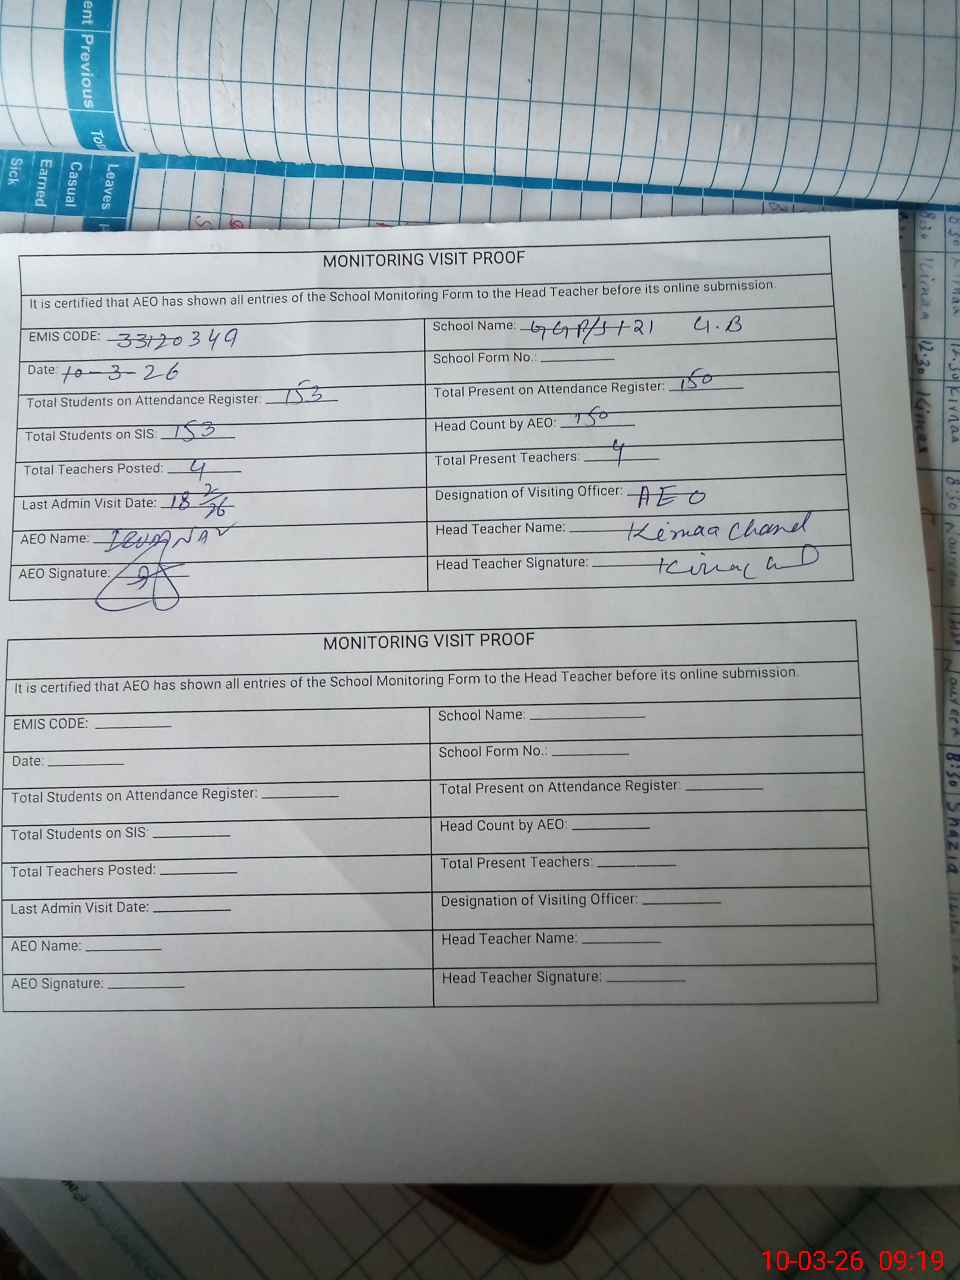 ent Previous
Tot
Leaves
Casual
Earned
Sick
MONITORING VISIT PROOF
It is certified that AEO has shown all entries of the School Monitoring Form to the Head Teacher before its online submission.
EMIS CODE: 33120349
School Name: GGP/S 121 G.B
Date: 10-3-26
School Form No.:
Total Students on Attendance Register: 153
Total Present on Attendance Register: 150
Total Students on SIS: 153
Head Count by AEO: 150
Total Teachers Posted: 4
Total Present Teachers: 4
Last Admin Visit Date: 18 2/26
Designation of Visiting Officer: AEO
AEO Name:
Head Teacher Name: Kirnaa Chand
AEO Signature:
Head Teacher Signature:
MONITORING VISIT PROOF
It is certified that AEO has shown all entries of the School Monitoring Form to the Head Teacher before its online submission.
EMIS CODE:
School Name:
Date:
School Form No.:
Total Students on Attendance Register:
Total Present on Attendance Register:
Total Students on SIS:
Head Count by AEO:
Total Teachers Posted:
Total Present Teachers:
Last Admin Visit Date:
Designation of Visiting Officer:
AEO Name:
Head Teacher Name:
AEO Signature:
Head Teacher Signature:
8:30 Kirnaa 12:30 Kirnaa
8:30 Shazia
10-03-26 09:19